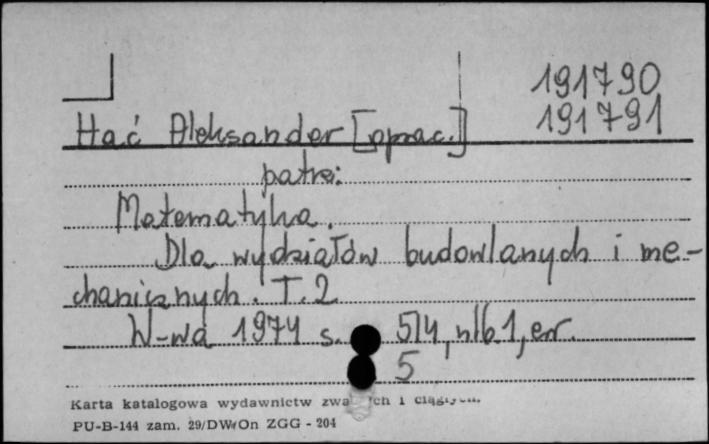 191790
191791
Hać Aleksander [oprac.]
patrz:
Matematyka.
Dla wydziałów budowlanych i me-
chanicznych. T. 2
W-wa 1974 s. 514, nlb. 1, err.
5
Karta katalogowa wydawnictw zwa ch i ciągłych.
PU-B-144 zam. 29/DW/On ZGG - 204